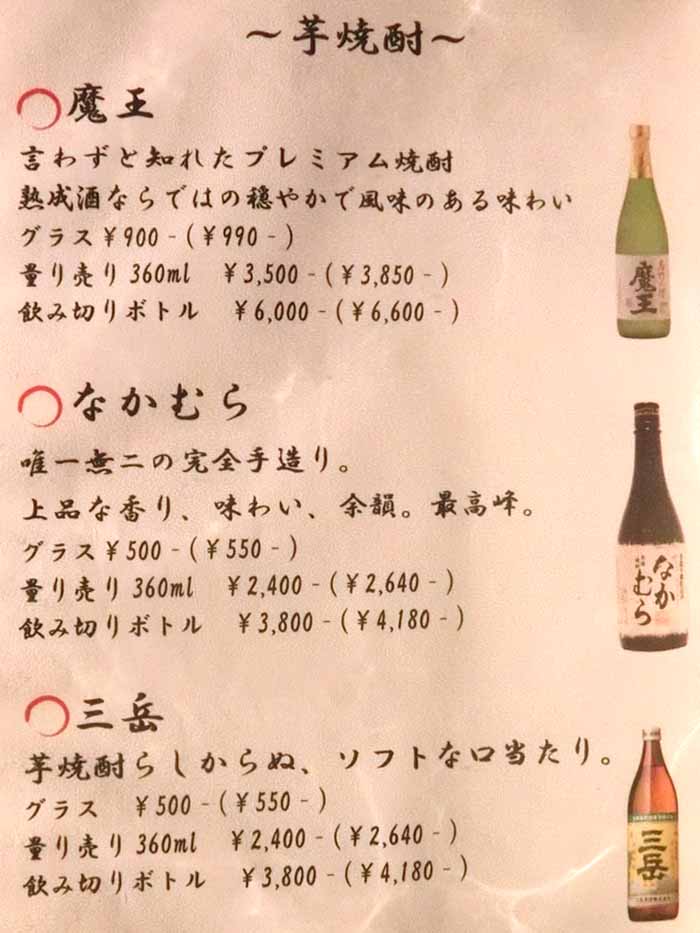 ～芋焼酎～
魔王
言わずと知れたプレミアム焼酎
熟成酒ならではの穏やかで風味のある味わい
グラス￥900‐(￥990‐)
量り売り360ml ￥3,500‐(￥3,850‐)
飲み切りボトル ￥6,000‐(￥6,600‐)
魔王
なかむら
唯一無二の完全手造り。
上品な香り、味わい、余韻。最高峰。
グラス￥500‐(￥550‐)
量り売り360ml ￥2,400‐(￥2,640‐)
飲み切りボトル ￥3,800‐(￥4,180‐)
なか
むら
三岳
芋焼酎らしからぬ、ソフトな口当たり。
グラス ￥500‐(￥550‐)
量り売り360ml ￥2,400‐(￥2,640‐)
飲み切りボトル ￥3,800‐(￥4,180‐)
三岳